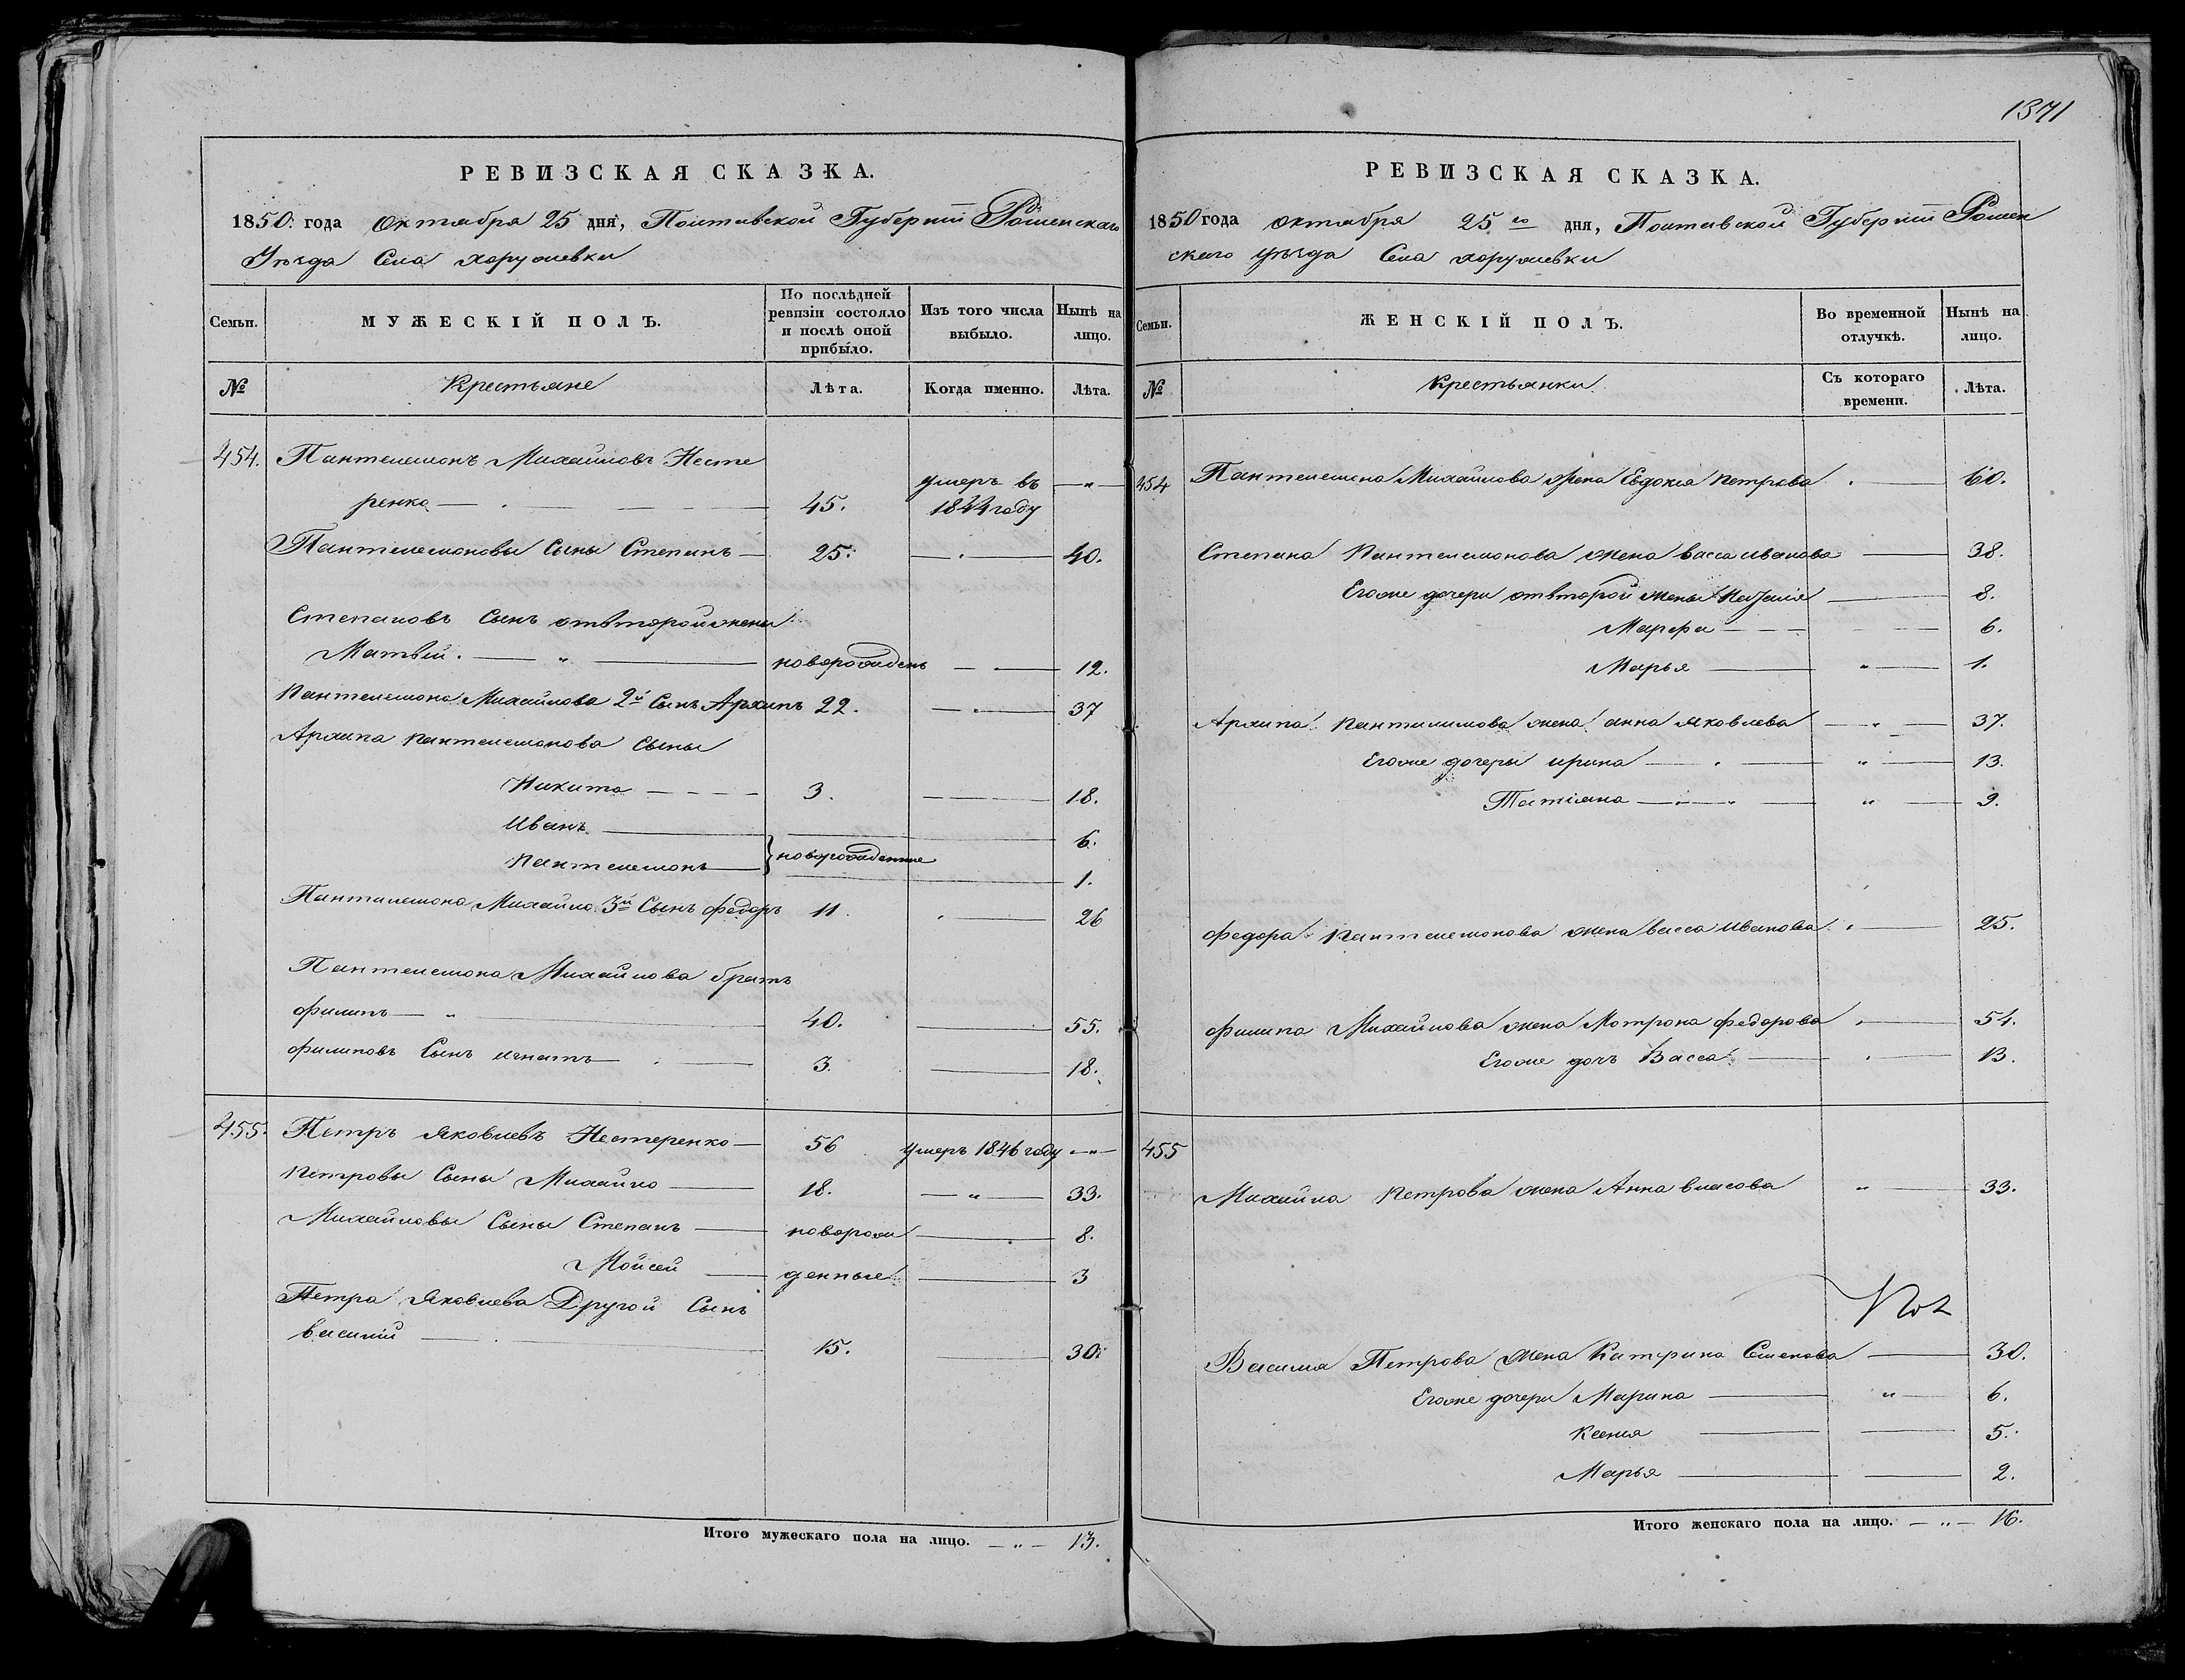 РЕВИЗСКАЯ СКАЗКА.
1850. года Октября 25 дня, Полтавской Губерніи Роменскаго
Уѣзда Села Хоружевки
Семьи.
МУЖЕСКІЙ ПОЛЪ.
По послѣдней ревизіи состояло и послѣ оной прибыло.
Изъ того числа выбыло.
Нынѣ на лицо.
№
Крестьяне
Лѣта.
Когда именно.
Лѣта.
454. Пантелемонъ Михайловъ Несте
ренко 45. умеръ въ 1844 году
Пантелемоновы Сыны Степанъ 25. 40.
Степановъ Сынъ отвторой жены
Матвѣй. новорожденъ 12.
Пантелемона Михайлова 2й Сынъ Архипъ 22. 37
Архипа Пантелемонова Сыны
Никита 3. 18.
Иванъ 6.
новорожденные
Пантелемонъ 1.
Пантилемона Михайло. 3й Сынъ Федоръ 11. 26
Пантелемона Михайлова братъ
Филипъ 40. 55.
Филиповъ Сынъ Игнатъ 3. 18.
455. Петръ Яковлевъ Нестеренко 56 умеръ 1846 году
Петровы Сыны Михайло 18. 33.
Михайловы Сыны Степанъ новорож 8.
Мойсей денные 3
Петра Яковлева Другой Сынъ
Василій 15. 30.
Итого мужескаго пола на лицо. 13.
1371
РЕВИЗСКАЯ СКАЗКА.
1850 года Октября 25го дня, Полтавской Губерніи Ромен
скаго уѣзда Села Хоружевки
Семьи.
ЖЕНСКІЙ ПОЛЪ.
Во временной отлучкѣ.
Нынѣ на лицо.
№
Крестьянки
Съ котораго времени.
Лѣта.
454 Пантелемона Михайлова жена Евдокia Петрова 60.
Степана Пантелемонова жена Васса Иванова 38.
Егоже дочери отвторой жены 8.
Марфа 6.
Марья 1.
Архипа Пантилимова жена Анна Яковлева 37.
Егоже дочеры Ирина 13.
Татіяна 9.
Федора Пантелемонова жена Васса Иванова 25.
Филипа Михайлова жена Мотрона Федорова 54.
Егоже дочъ Васса 13.
455
Михайла Петрова жена Анна Власова 33.
Василя Петрова жена Катрина Семенова 30.
Егоже дочери Марина 6.
Ксенія 5.
Марья 2.
Итого женскаго пола на лицо. 16.